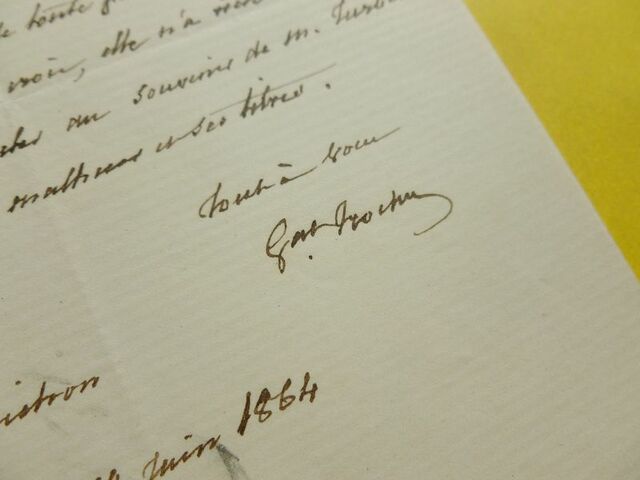 toute
voir, elle n'a
au souvenir de M.
malheurs et ses titres.
tout à vous
Gal Trochu
juin 1864